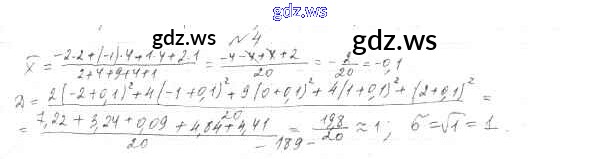 gdz.ws
№4
gdz.ws gdz.ws
x̄ = (-2·2+(-1)·4+1·4+2·1)/(2+4+9+4+1) = (-4-4+4+2)/20 = -2/20 = -0,1
D = (2(-2+0,1)²+4(-1+0,1)²+9(0+0,1)²+4(1+0,1)²+(2+0,1)²)/20 =
= (7,22+3,24+0,09+4,84+4,41)/20 = 19,8/20 ≈ 1; σ=√1=1.
-189-
gdz.ws